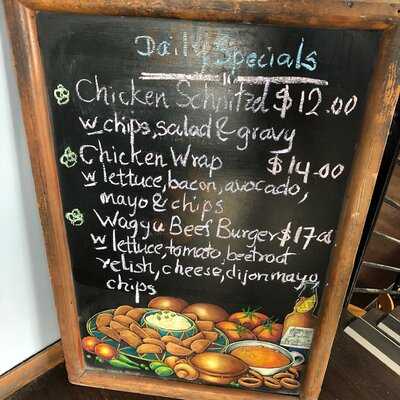 Daily Specials
Chicken Schnitzel $12.00
w chips, salad & gravy
Chicken Wrap $14.00
w lettuce, bacon, avocado,
mayo & chips
Wagyu Beef Burger $17.00
w lettuce, tomato, beetroot
relish, cheese, dijon mayo,
chips